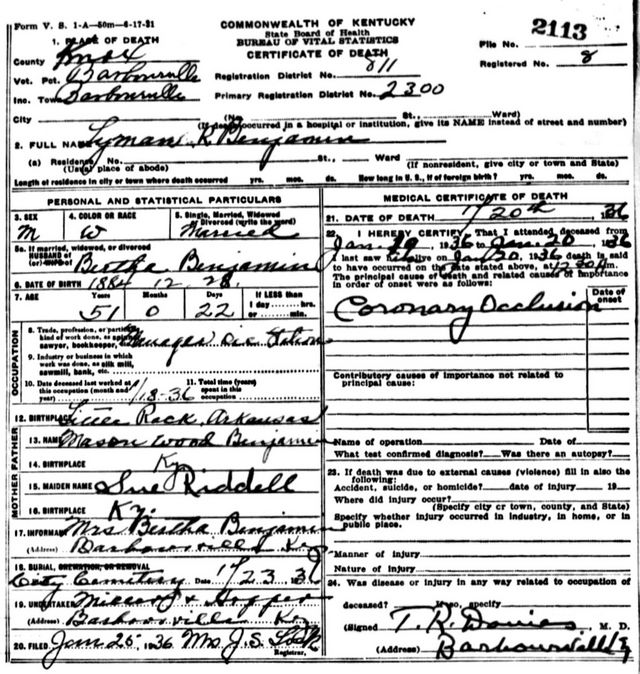 Form V. S. 1-A—50m—6-17-31
COMMONWEALTH OF KENTUCKY
State Board of Health
BUREAU OF VITAL STATISTICS
CERTIFICATE OF DEATH
File No. 2113
Registered No. 8
1. PLACE OF DEATH
County Knox
Vot. Pct. Barbourville
Inc. Town Barbourville
Registration District No. 811
Primary Registration District No. 2300
City (No. St., Ward)
(If death occurred in a hospital or institution, give its NAME instead of street and number)
2. FULL NAME Lyman K Benjamin
(a) Residence. No. St., Ward
(Usual place of abode) (If nonresident, give city or town and State)
Length of residence in city or town where death occurred yrs. mos. ds. How long in U. S., if of foreign birth? yrs. mos. ds.
PERSONAL AND STATISTICAL PARTICULARS
3. SEX
M
4. COLOR OR RACE
W
5. Single, Married, Widowed or Divorced (write the word)
Married
5a. If married, widowed, or divorced
HUSBAND of
(or) WIFE of Bertha Benjamin
6. DATE OF BIRTH 1884 12 28
7. AGE Years Months Days If LESS than
51 0 22 1 day hrs. or min.
OCCUPATION
8. Trade, profession, or particular kind of work done, as sawyer, bookkeeper, Manager Station
9. Industry or business in which work was done, as silk mill, sawmill, bank, etc.
10. Date deceased last worked at this occupation (month and year) 1/18-36
11. Total time (years) spent in this occupation
12. BIRTHPLACE Little Rock, Arkansas
FATHER
13. NAME Mason Wood Benjamin
14. BIRTHPLACE Ky
MOTHER
15. MAIDEN NAME Sue Riddell
16. BIRTHPLACE Ky.
17. INFORMANT Mrs Bertha Benjamin
(Address) Barbourville Ky
18. BURIAL, CREMATION, OR REMOVAL
City Cemetery Date 1/23 36
19. UNDERTAKER Miller J & Hopper
(Address) Barbourville Ky
20. FILED Jan 25, 1936 Mrs J. S.
Registrar.
MEDICAL CERTIFICATE OF DEATH
21. DATE OF DEATH 1/20th 36
22. I HEREBY CERTIFY, That I attended deceased from
Jan. 1936 to Jan. 20, 1936
I last saw alive on Jan 20, 1936 death is said
to have occurred on the date stated above, at 12:30 m.
The principal cause of death and related causes of importance in order of onset were as follows:
Date of onset
Coronary Occlusion
Contributory causes of importance not related to principal cause:
Name of operation Date of
What test confirmed diagnosis? Was there an autopsy?
23. If death was due to external causes (violence) fill in also the following:
Accident, suicide, or homicide? date of injury 19
Where did injury occur?
(Specify city or town, county, and State)
Specify whether injury occurred in industry, in home, or in public place.
Manner of injury
Nature of injury
24. Was disease or injury in any way related to occupation of deceased? If so, specify
(Signed T. R. Davies, M. D.
(Address) Barbourville Ky